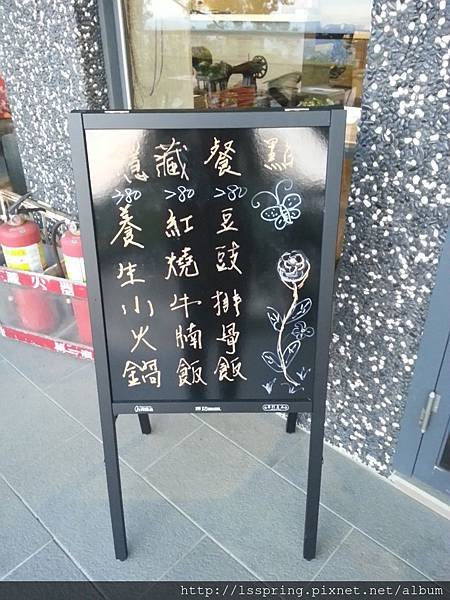 隱藏餐點
280 280 280
豆豉排骨飯
紅燒牛腩飯
養生小火鍋
http://lsspring.pixnet.net/album